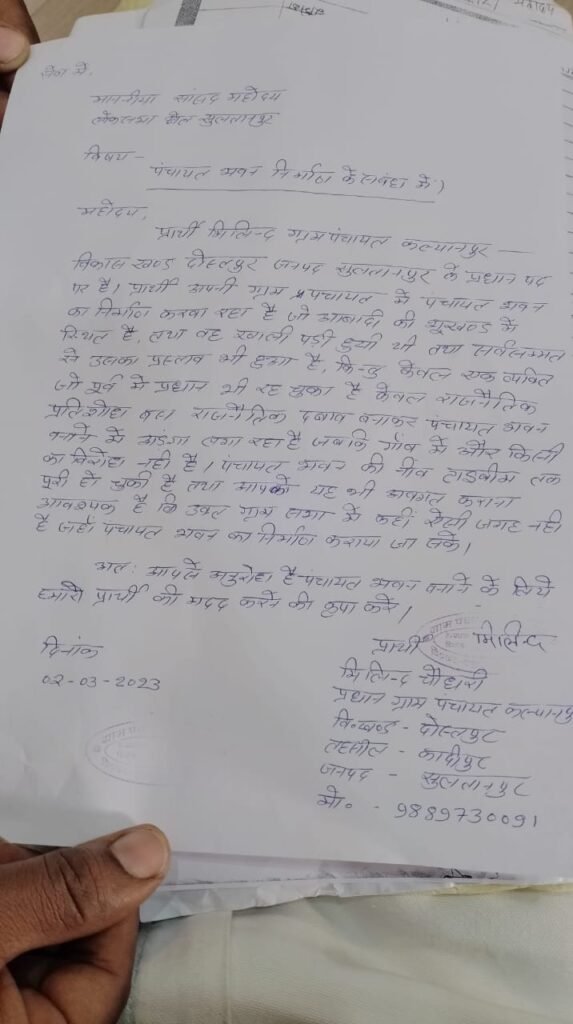 सेवा में,
माननीया सांसद महोदय
लोकसभा क्षेत्र सुलतानपुर
विषय - पंचायत भवन निर्माण के संबंध में।
महोदय,
प्रार्थी मिलिन्द ग्राम पंचायत कल्यानपुर -
विकास खण्ड दोस्तपुर जनपद सुलतानपुर के प्रधान पद
पर है। प्रार्थी अपनी ग्राम पंचायत में पंचायत भवन
का निर्माण करवा रहा है जो आबादी की भूखण्ड में
स्थित है, तथा वह खाली पड़ी हुयी थी तथा सर्वसम्मत
से उसका प्रस्ताव भी हुआ है, किन्तु केवल एक व्यक्ति
जो पूर्व में प्रधान भी रह चुका है केवल राजनैतिक
प्रतिशोध वश राजनैतिक दबाव बनाकर पंचायत भवन
बनाने में अडंगा लगा रहा है जबकि गाँव में और किसी
का विरोध नही है। पंचायत भवन की नींव टाईबीम तक
पूरी हो चुकी है तथा आपको यह भी अवगत कराना
आवश्यक है कि उक्त ग्राम सभा में कहीं ऐसी जगह नही
है जहाँ पंचायत भवन का निर्माण कराया जा सके।
अतः आपसे अनुरोध है पंचायत भवन बनाने के लिये
हमारी प्रार्थी की मदद करने की कृपा करें।
दिनांक
02-03-2023
प्रार्थी मिलिन्द
मिलिन्द चौधरी
प्रधान ग्राम पंचायत कल्यानपुर
वि०खण्ड - दोस्तपुर
तहसील - कादीपुर
जनपद - सुलतानपुर
मो० - 9889730091